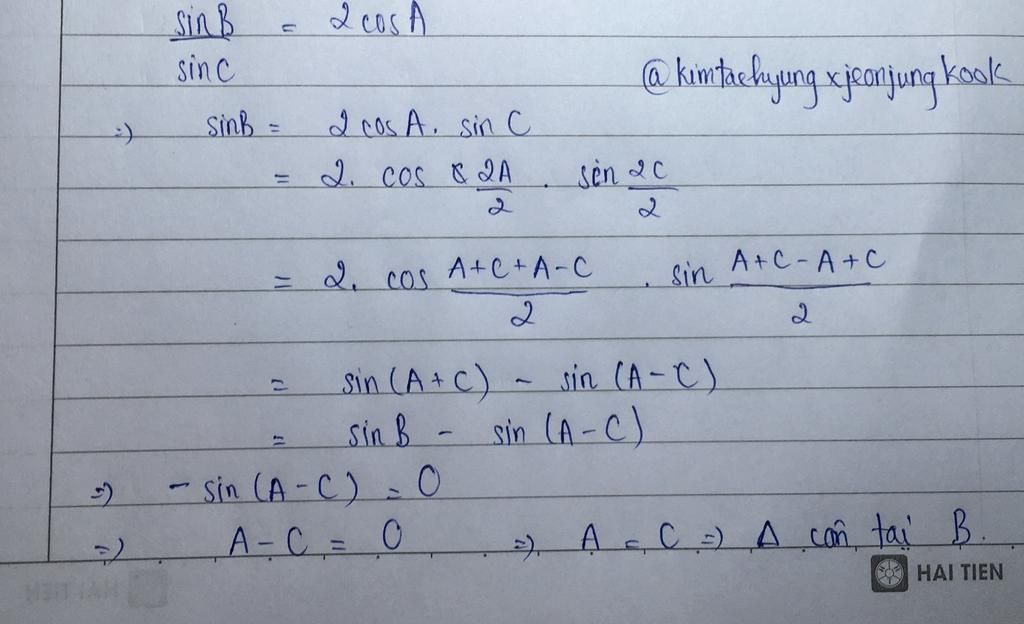 sinB/sinC = 2cosA
@kimtaehyung xjeonjungkook
=) sinB = 2cosA. sin C
= 2. cos 2A/2 . sin 2C/2
= 2. cos (A+C+A-C)/2 . sin (A+C-A+C)/2
= sin(A+C) - sin(A-C)
= sinB - sin(A-C)
=) - sin(A-C) = 0
=) A-C = 0 =) A = C =) Δ cân tại B.
HAI TIEN